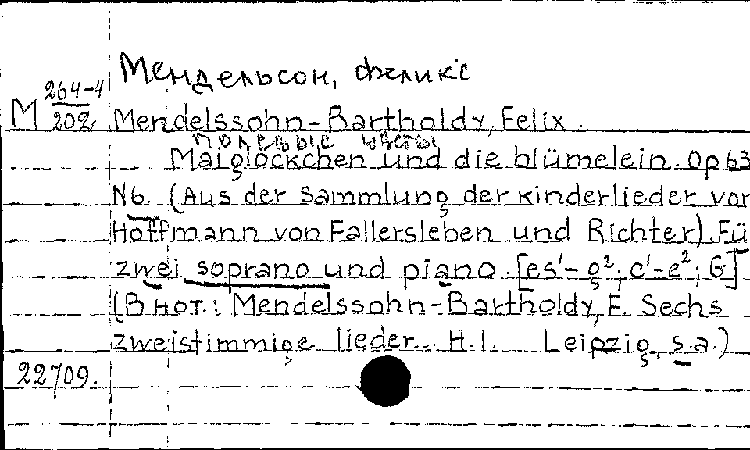 Мендельсон, Феликс
М 264-4
202
Mendelssohn-Bartholdy, Felix.
полевые цветы
Maiglöckchen und die blümelein. Op 63
N6. (Aus der Sammlung der Kinderlieder von
Hoffmann von Fallersleben und Richter). Fü
zwei soprano und piano. [es'-g²; c'-e²; G]
(В нот.: Mendelssohn-Bartholdy, F. Sechs
zweistimmige lieder. H.1. Leipzig, s.a.)
22709.